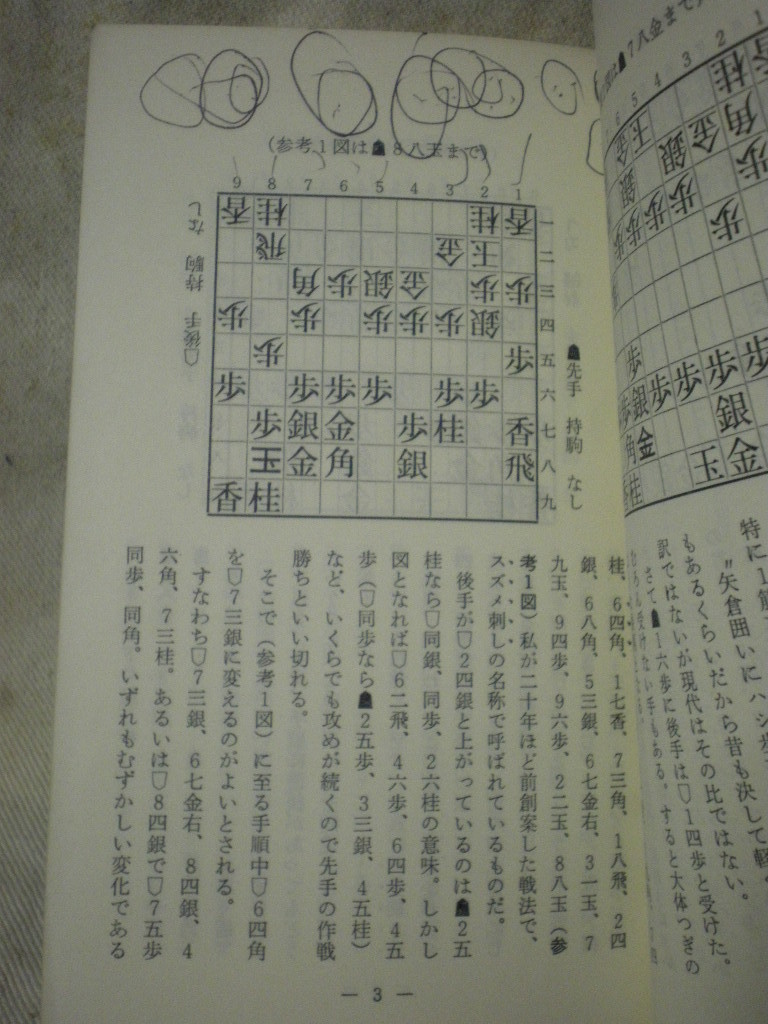 特に1筋
〝矢倉囲いにハシ歩
もあるくらいだから昔も決して軽
訳ではないが現代はその比ではない。
さて☗1六歩に後手は☖1四歩と受けた。
受けない手もある。すると大体つぎの
☗7八金まで
(参考1図は☗8八玉まで)
9 8 7 6 5 4 3 2 1
香 桂 桂 香 一
飛 金 玉 二
角 歩 銀 金 歩 歩 三
歩 歩 歩 歩 歩 銀 四
歩 歩 五
歩 歩 歩 歩 歩 歩 六
歩 銀 金 歩 桂 香 七
玉 金 角 銀 飛 八
香 桂 九
☗先手 持駒 なし
☖後手 持駒 なし
桂、6四角、1七香、7三角、1八飛、2四
銀、6八角、5三銀、6七金右、3一玉、7
九玉、9四歩、9六歩、2二玉、8八玉(参
考1図)私が二十年ほど前創案した戦法で、
スズメ刺しの名称で呼ばれているものだ。
後手が☖2四銀と上がっているのは☗2五
桂なら☖同銀、同歩、2六桂の意味。しかし
図となれば☖6二飛、4六歩、6四歩、4五
歩(☖同歩なら☗2五歩、3三銀、4五桂)
など、いくらでも攻めが続くので先手の作戦
勝ちといい切れる。
そこで(参考1図)に至る手順中☖6四角
を☖7三銀に変えるのがよいとされる。
すなわち☖7三銀、6七金右、8四銀、4
六角、7三桂。あるいは☖8四銀で☖7五歩
同歩、同角。いずれもむずかしい変化である
— 3 —